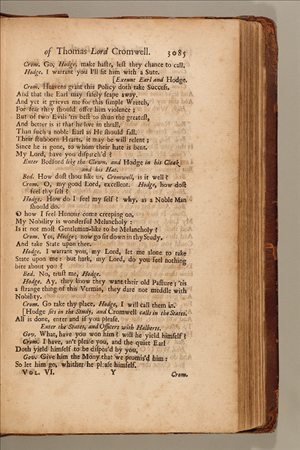 of Thomas Lord Cromwell. 3085
Crom. Go, Hodge, make haste, lest they chance to call.
Hodge. I warrant you I'll fit him with a Sute.
[Exeunt Earl and Hodge.
Crom. Heavens grant this Policy doth take Success,
And that the Earl may safely scape away.
And yet it grieves me for this simple Wretch,
For fear they should offer him violence;
But of two Evils 'tis best to shun the greatest,
And better is it that he live in thrall,
Than such a noble Earl as He should fall.
Their stubborn Hearts, it may be will relent;
Since he is gone, to whom their hate is bent.
My Lord, have you dispatch'd?
Enter Bedford like the Clown, and Hodge in his Cloak
and his Hat.
Bed. How dost thou like us, Cromwell, is it well?
Crom. O, my good Lord, excellent. Hodge, how dost
feel thy self?
Hodge. How do I feel my self? why, as a Noble Man
should do.
O how I feel Honour come creeping on,
My Nobility is wonderful Melancholy:
Is it not most Gentleman-like to be Melancholy?
Crom. Yes, Hodge; now go sit down in thy Study,
And take State upon thee.
Hodge. I warrant you, my Lord, let me alone to take
State upon me: but hark, my Lord, do you feel nothing
bite about you?
Bed. No, trust me, Hodge.
Hodge. Ay, they know they want their old Pasture; 'tis
a strange thing of this Vermin, they dare not meddle with
Nobility.
Crom. Go take thy place, Hodge, I will call them in.
[Hodge sits in the Study, and Cromwell calls in the States.
All is done, enter and if you please.
Enter the States, and Officers with Halberts.
Gov. What, have you won him? will he yield himself?
Crom. I have, an't please you, and the quiet Earl
Doth yield himself to be dispos'd by you.
Gov. Give him the Mony that we promis'd him:
So let him go, whither he please himself.
VOL. VI. Y Crom.